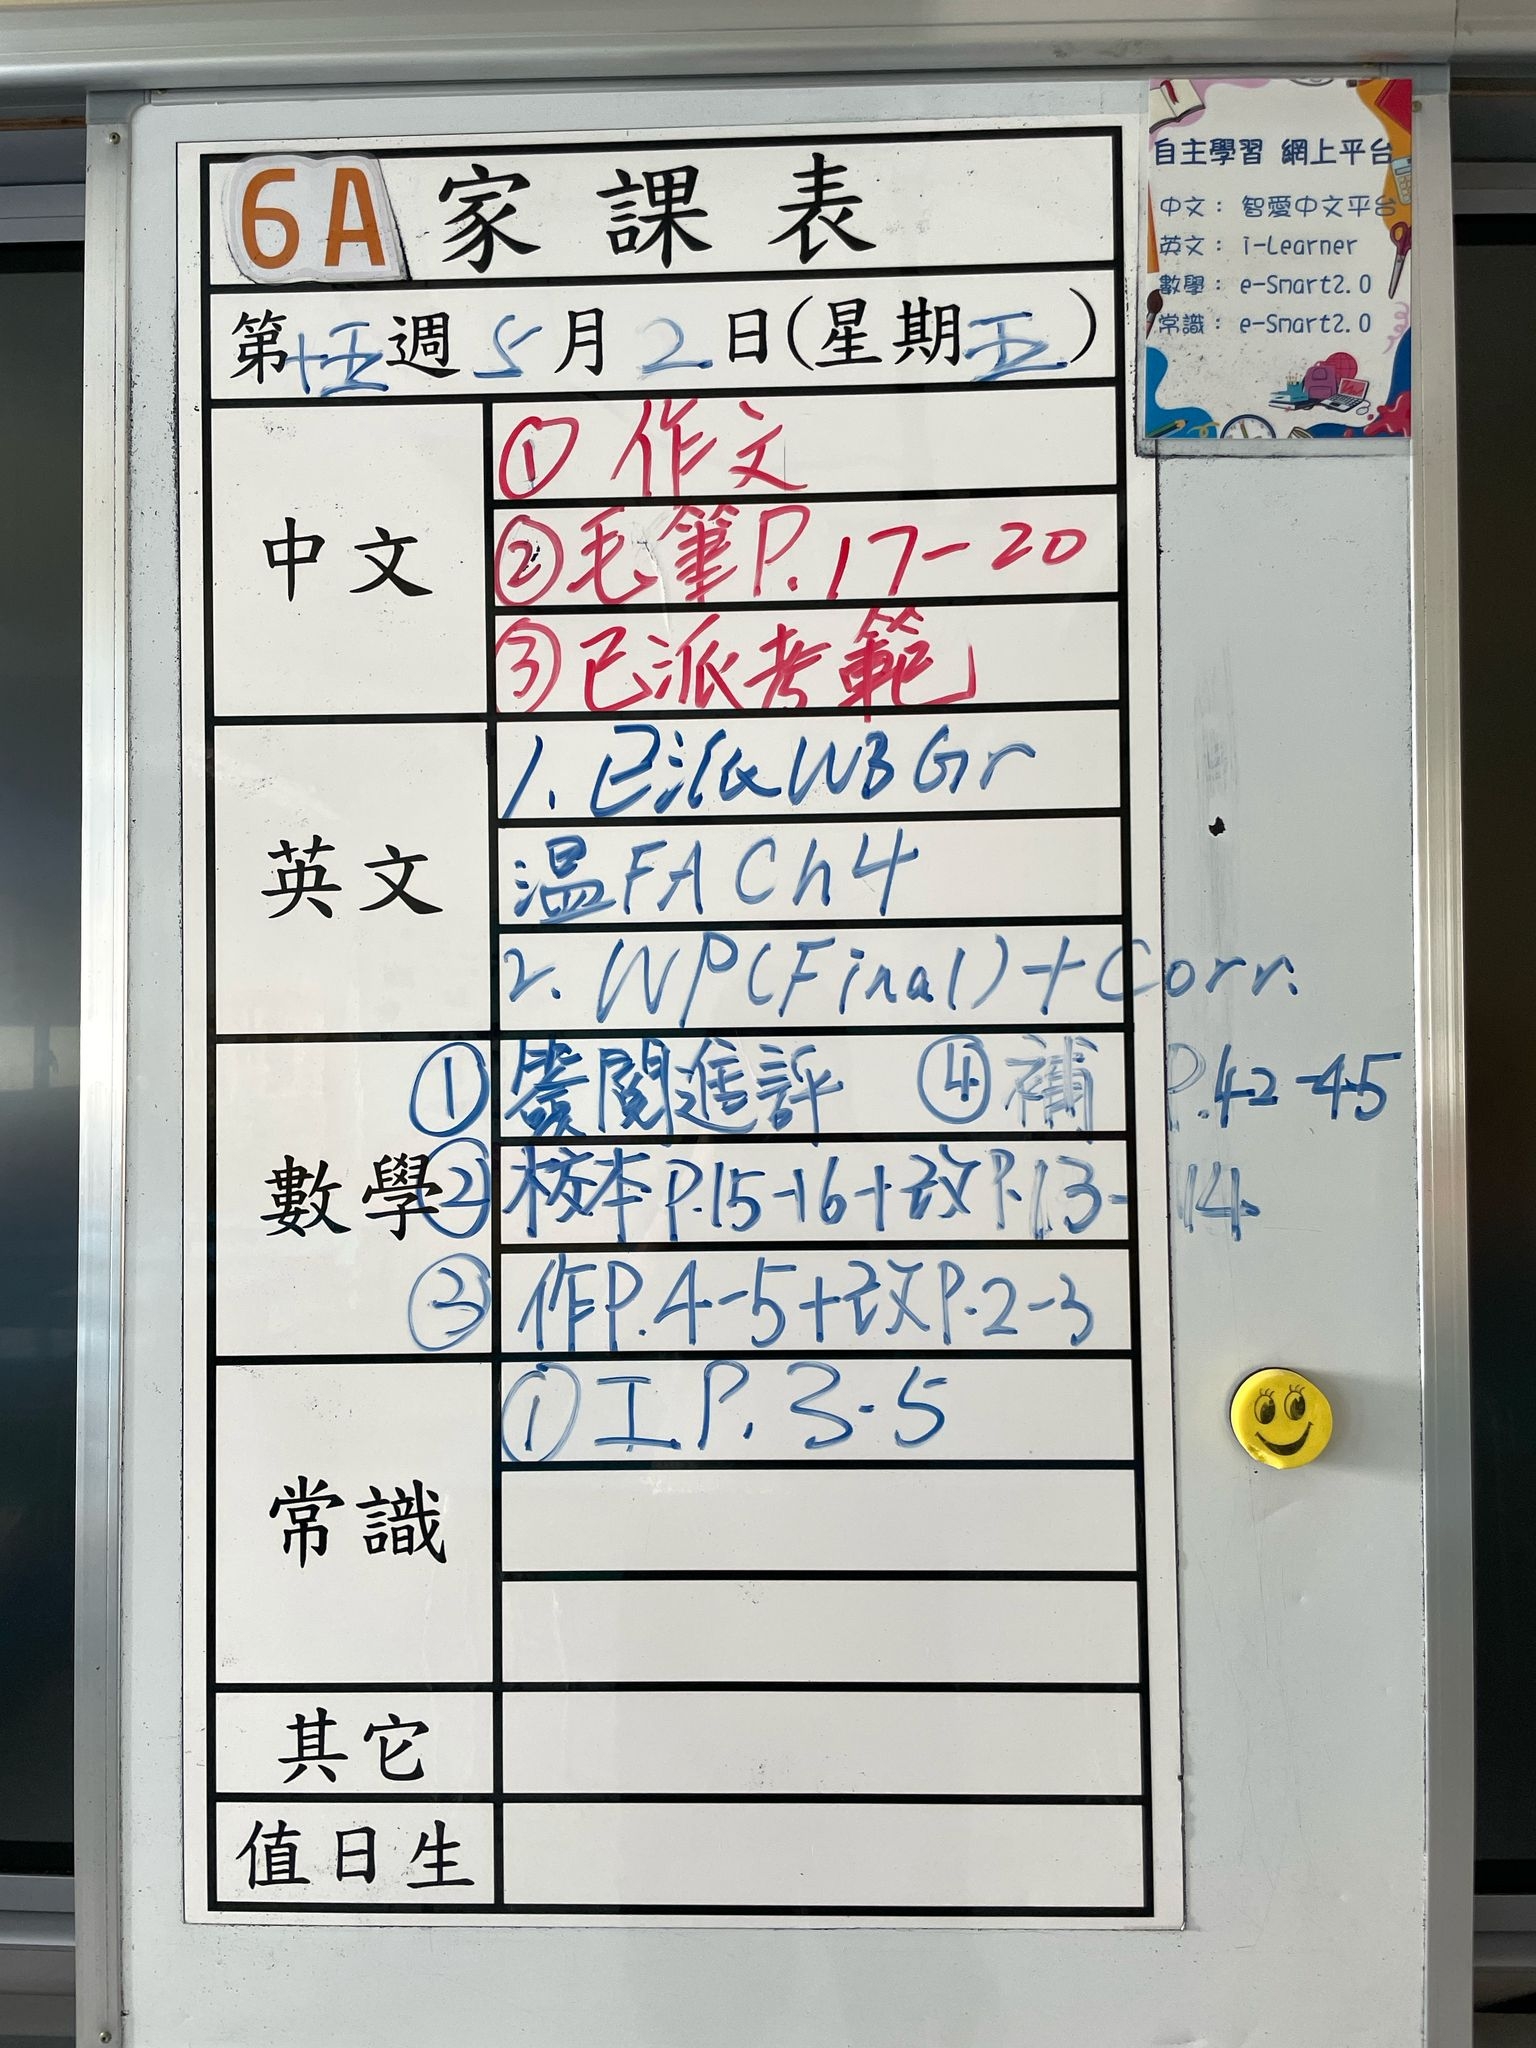 6A 家課表
自主學習 網上平台
中文： 智愛中文平台
英文： i-Learner
數學： e-Smart2.0
常識： e-Smart2.0
第十五週 5月2日(星期五)
中文
① 作文
② 毛筆P.17-20
③ 已派考範
英文
1. 已派WB Gr
溫FA Ch4
2. WP(Final)+Corr.
數學
① 簽閱進評 ④ 補 P.42-45
② 校本P.15-16+改P.13-14
③ 作P.4-5+改P.2-3
常識
① 工P.3-5
其它
值日生